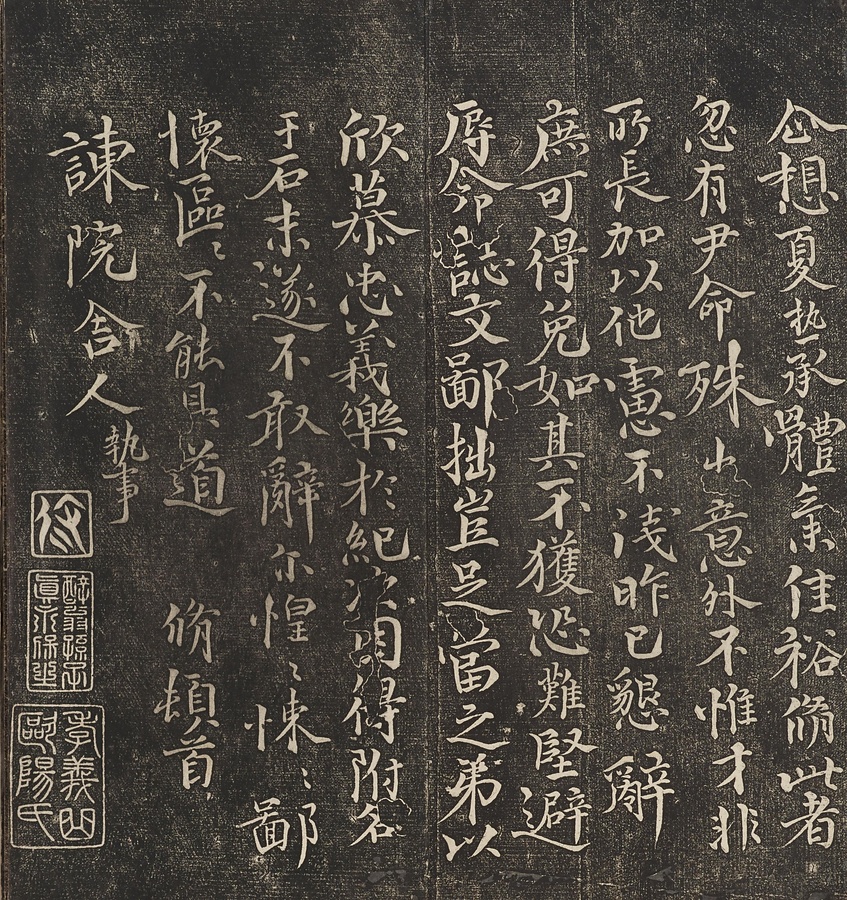 企想夏热承體氣佳裕脩此者
忽有尹命殊出意外不惟才非
所長加以他慮不淺昨已懇辭
庶可得免如其不獲恐難堅避
辱命誌文鄙拙豈足當之弟以
欣慕忠義樂於紀次因得附名
于石未遂不敢辭尔惶〻悚〻鄙
懷區〻不能具道 脩頓首
諫院舍人執事
醉翁孫子
真永保之
六一
歐陽氏